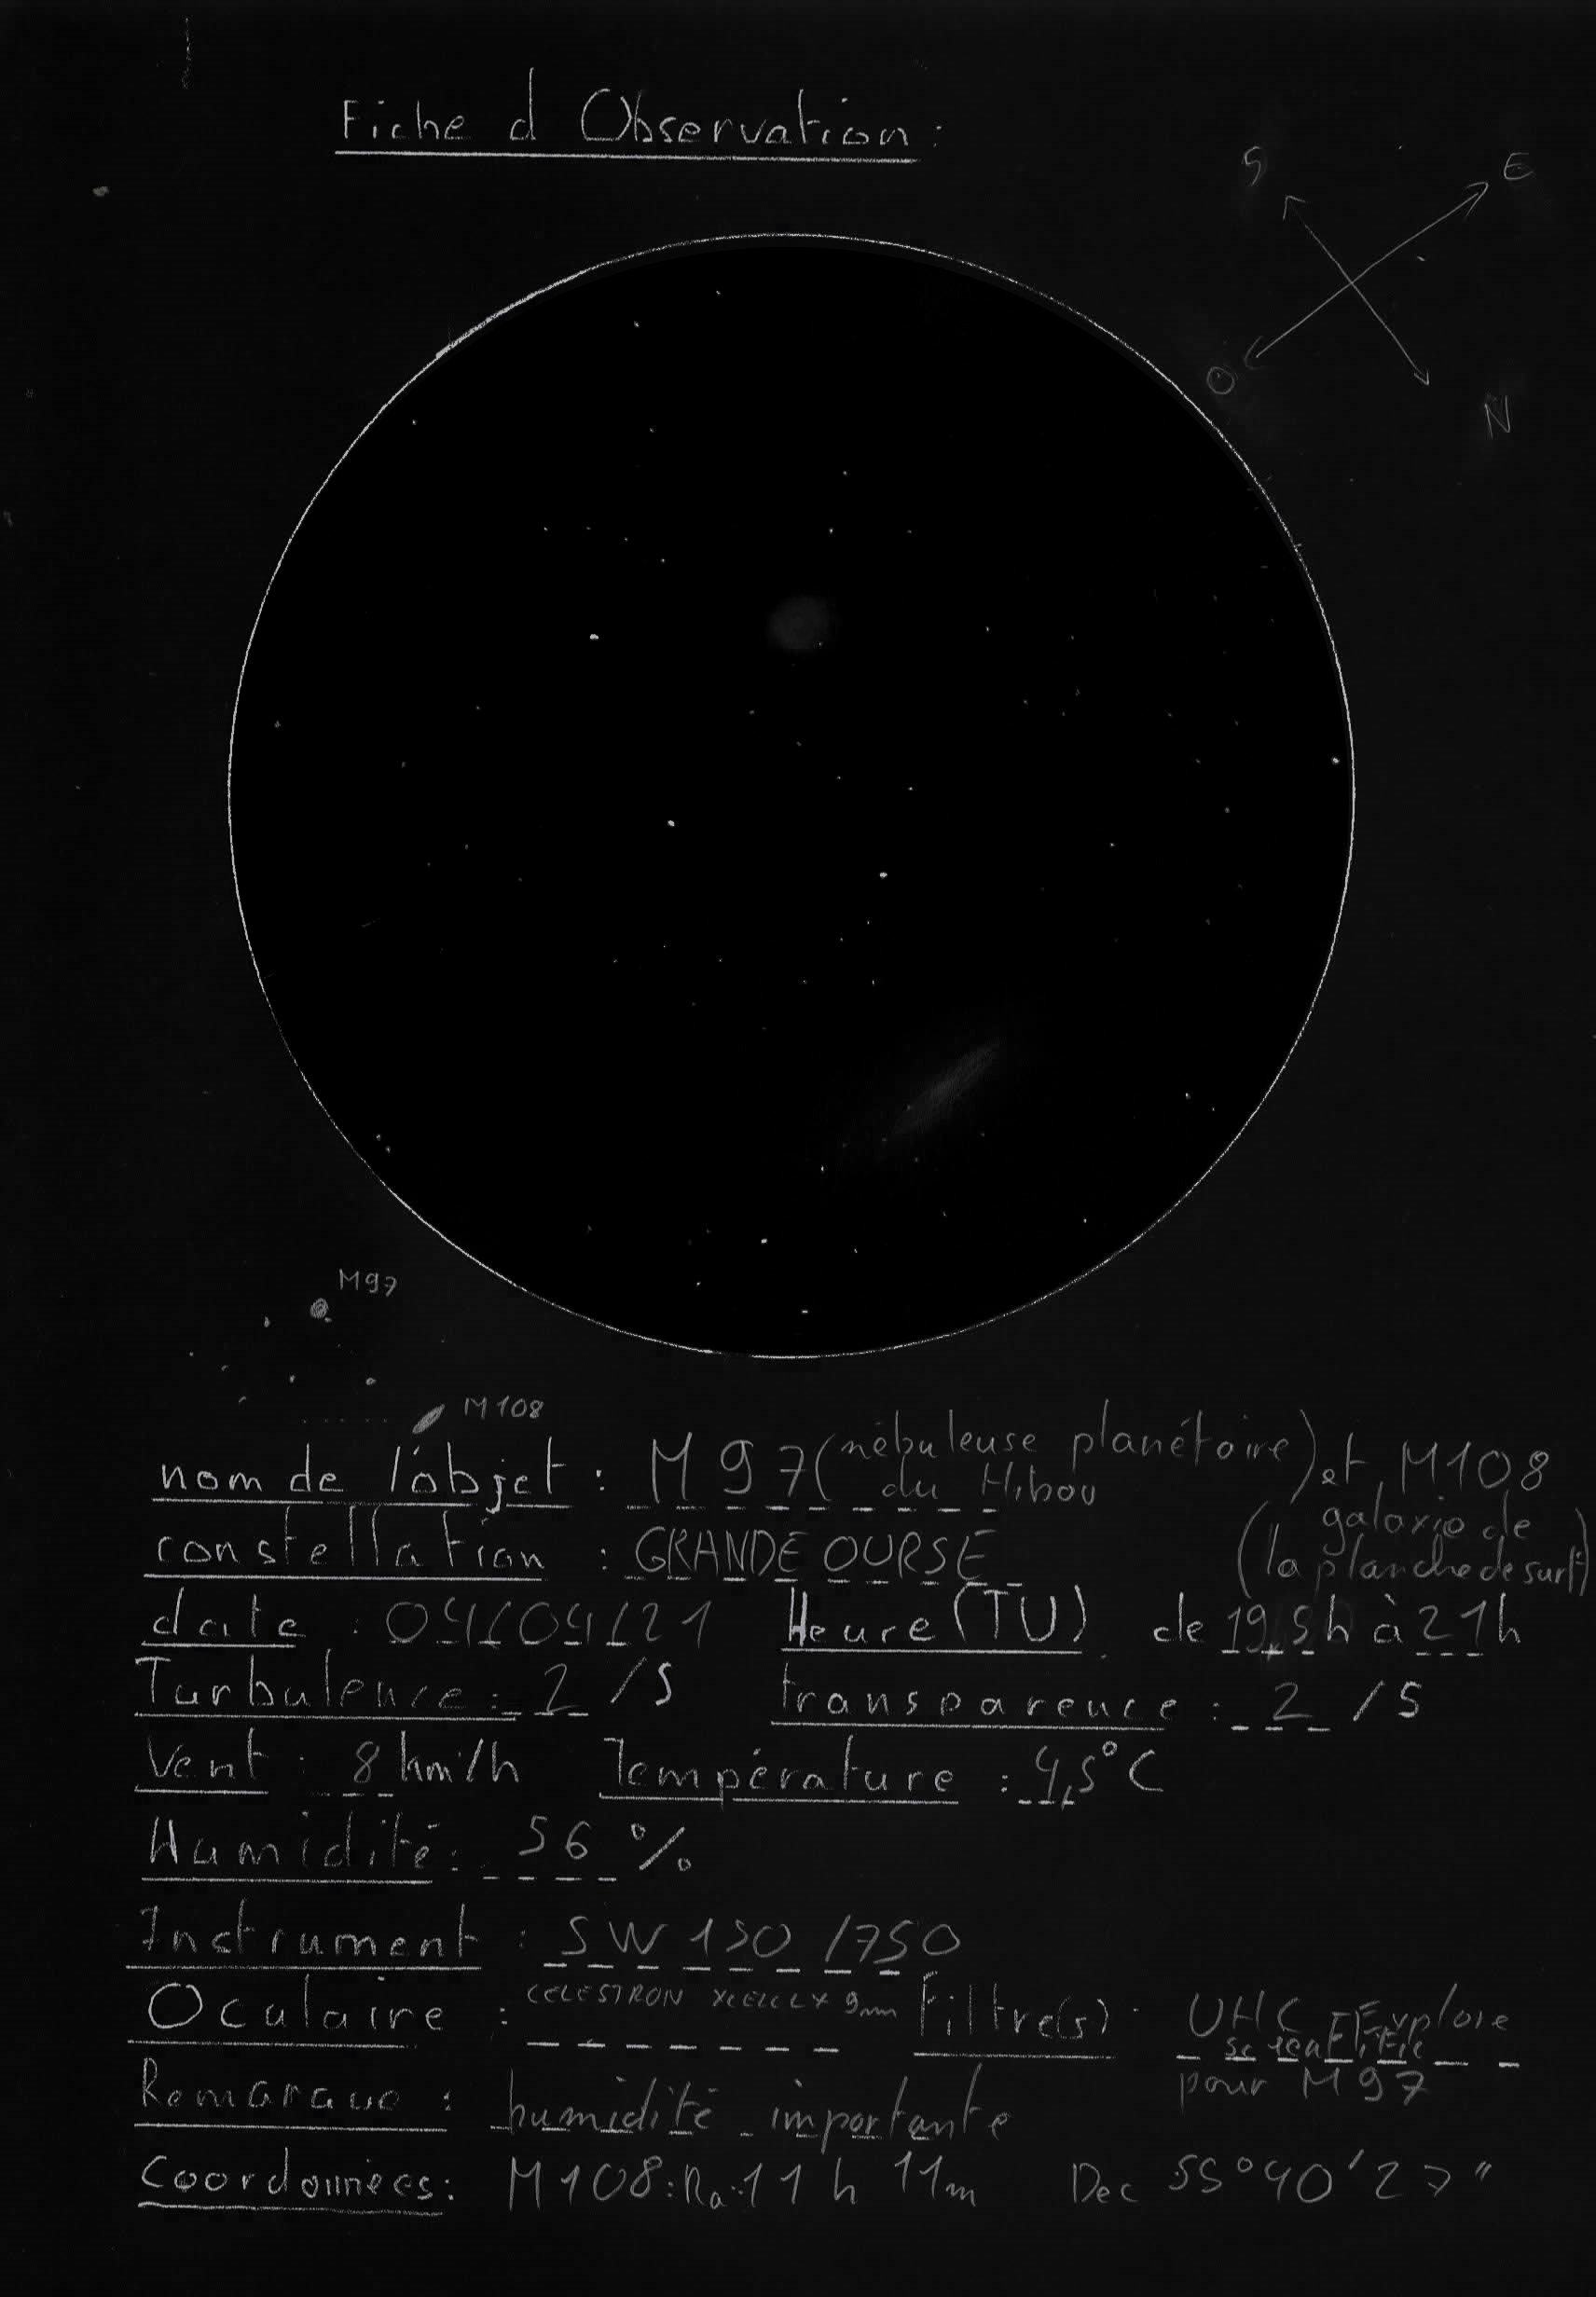 Fiche d Observation :
S
E
O
N
M97
M108
nom de l'objet : M97 (nébuleuse planétaire du Hibou) et M108
(galaxie de la planche de surf)
constellation : GRANDE OURSE
date : 04/04/21 Heure (TU) de 19,5h à 21h
Turbulence : 2 /5 transparence : 2 /5
Vent : 8 km/h Température : 4,5°C
Humidité : 56 %
Instrument : SW 150 /750
Oculaire : CELESTRON XCELLX 9mm Filtre(s) : UHC Explore
scientific
pour M97
Remarque : humidité importante
Coordonnées : M108 : Ra : 11 h 11m Dec 55°40'27"